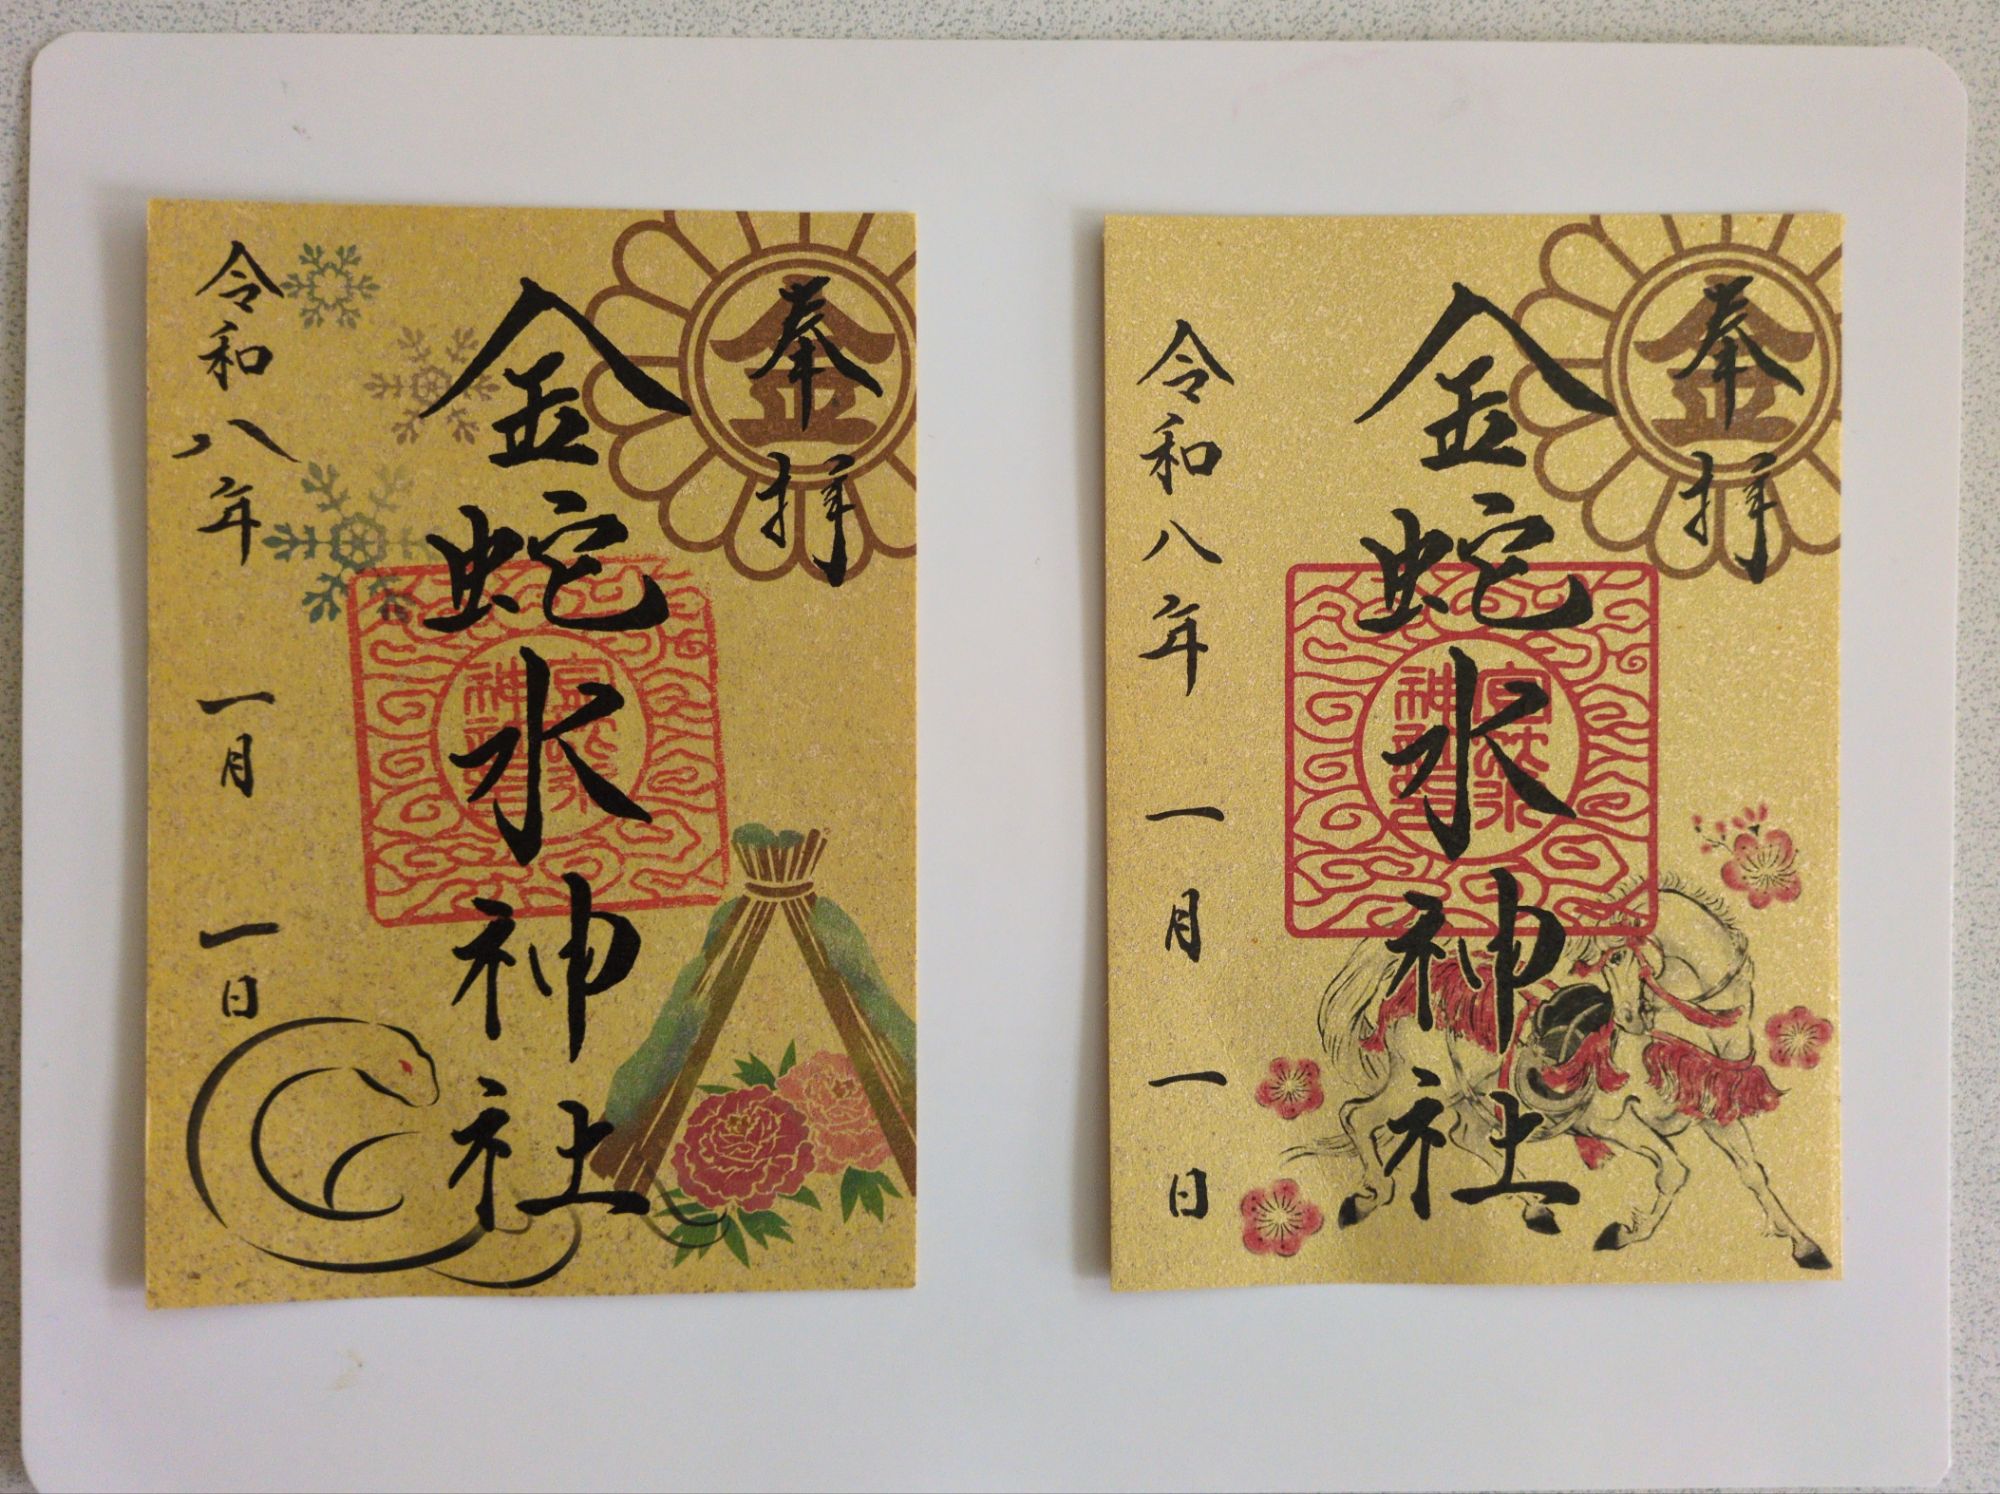 奉拝
金
金蛇水神社
令和八年 一月 一日
奉拝
金
金蛇水神社
令和八年 一月 一日